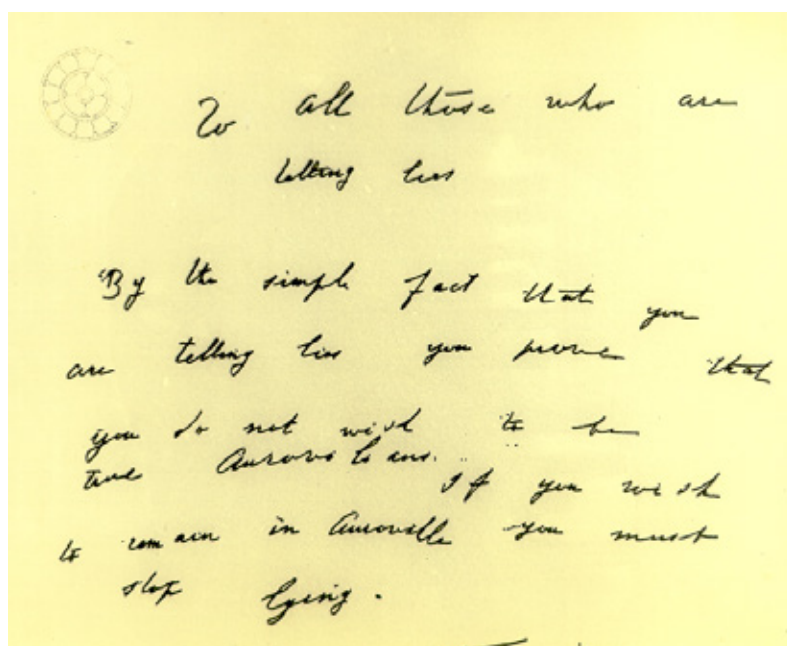 To all those who are
telling lies
"By the simple fact that you
are telling lies you prove that
you do not wish to be
true Aurovilians.
If you wish
to remain in Auroville you must
stop lying.